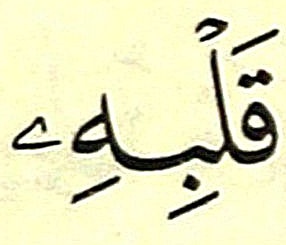 قَلۡبِهِۦ